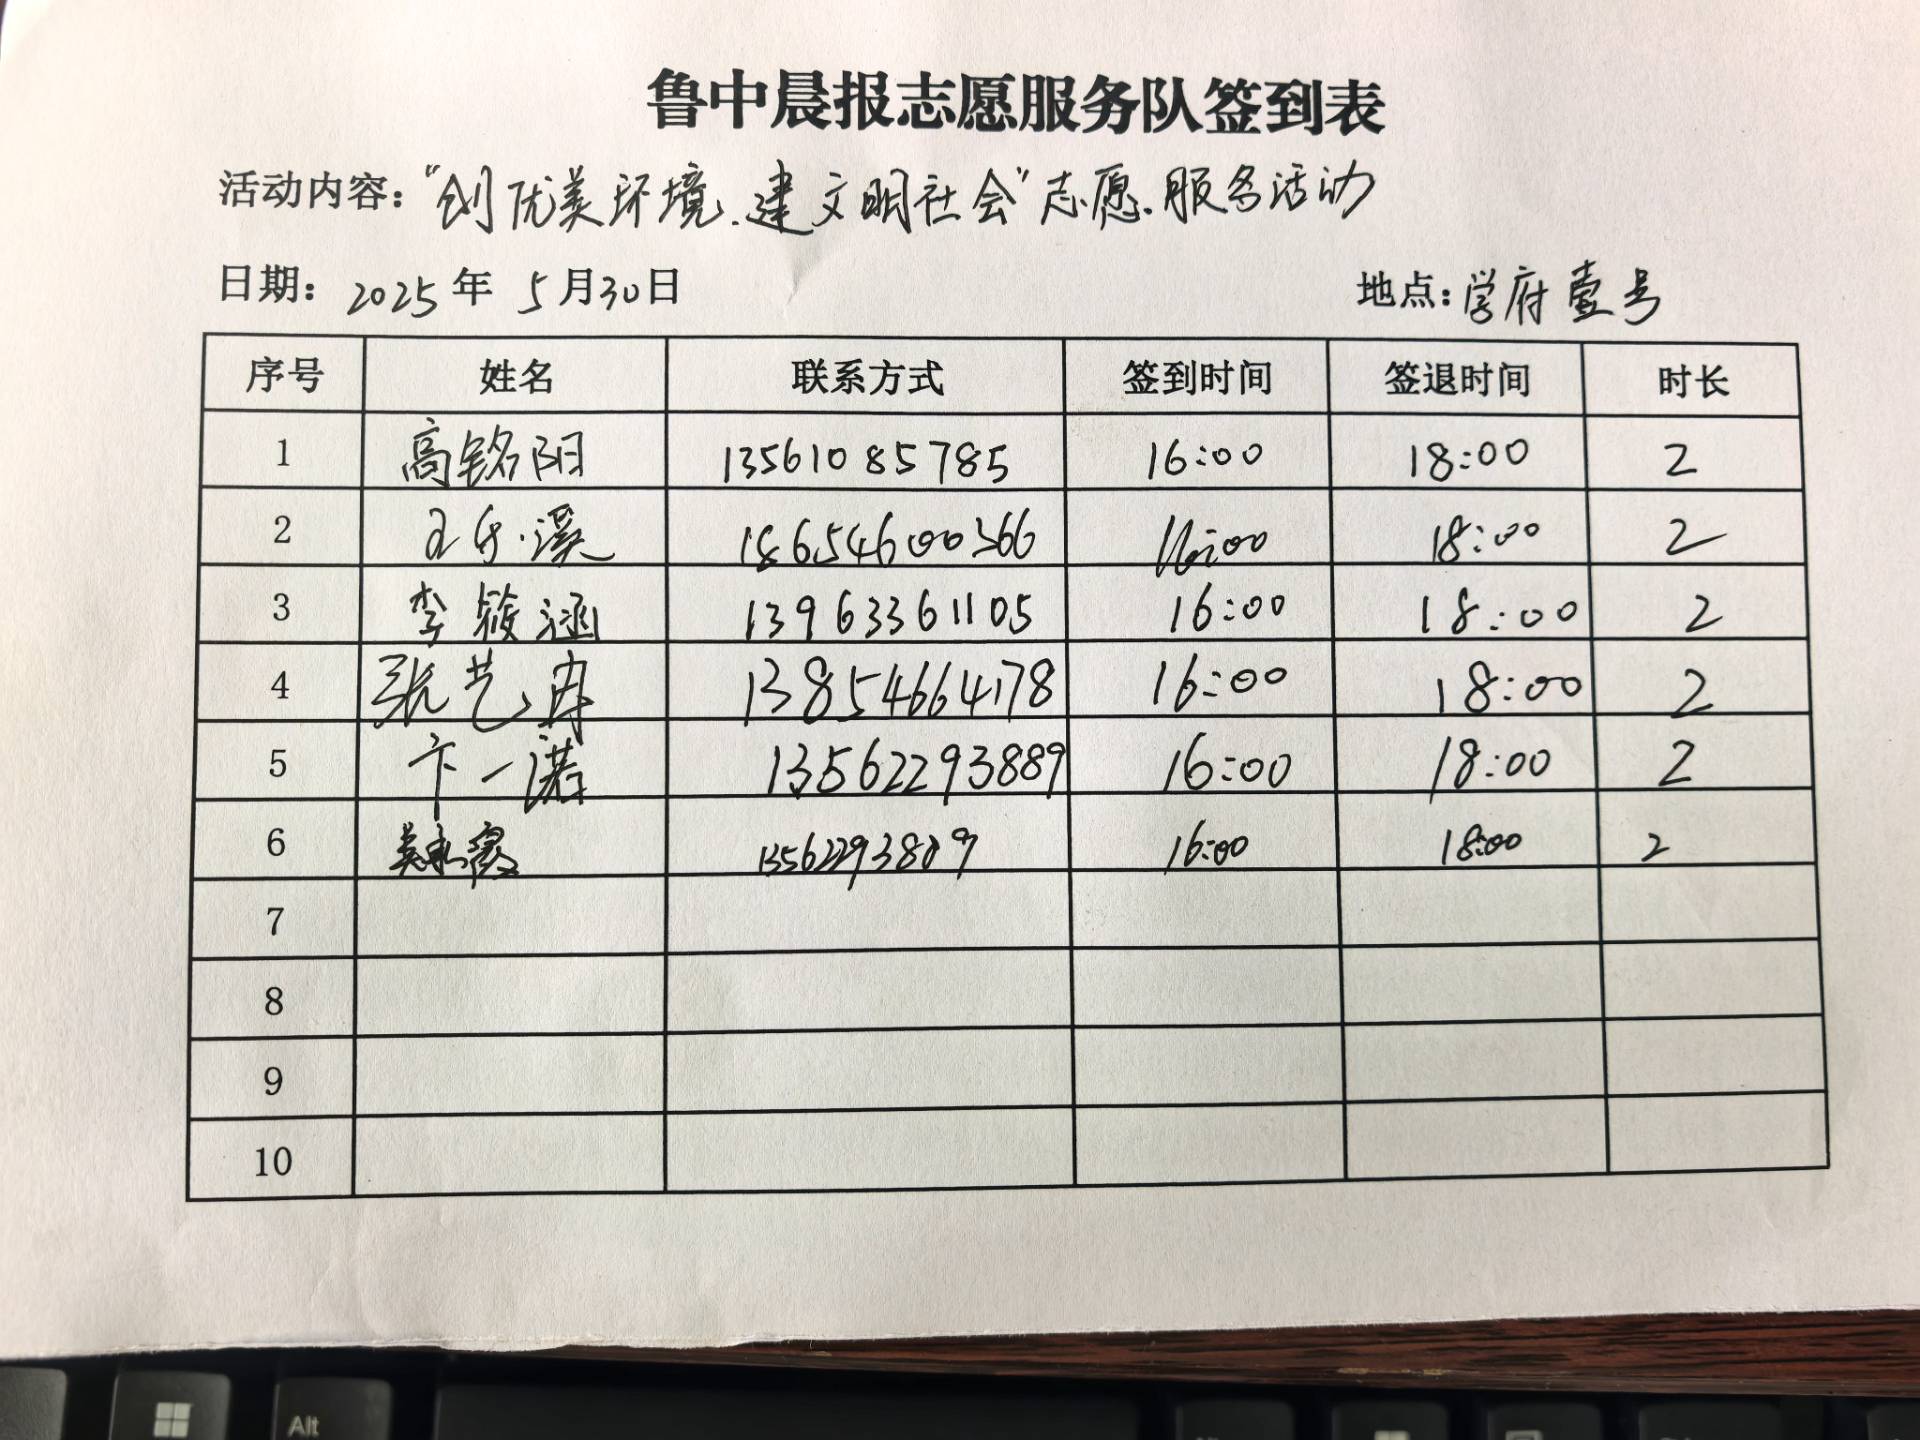 鲁中晨报志愿服务队签到表
活动内容："创优美环境.建文明社会"志愿服务活动
日期：2025年 5月30日 地点：学府壹号
序号 姓名 联系方式 签到时间 签退时间 时长
1 高铭阳 13561085785 16:00 18:00 2
2 18654600366 16:00 18:00 2
3 李筱涵 13963361105 16:00 18:00 2
4 张艺冉 13854664178 16:00 18:00 2
5 卞一诺 13562293889 16:00 18:00 2
6 13562293889 16:00 18:00 2
7
8
9
10
Alt